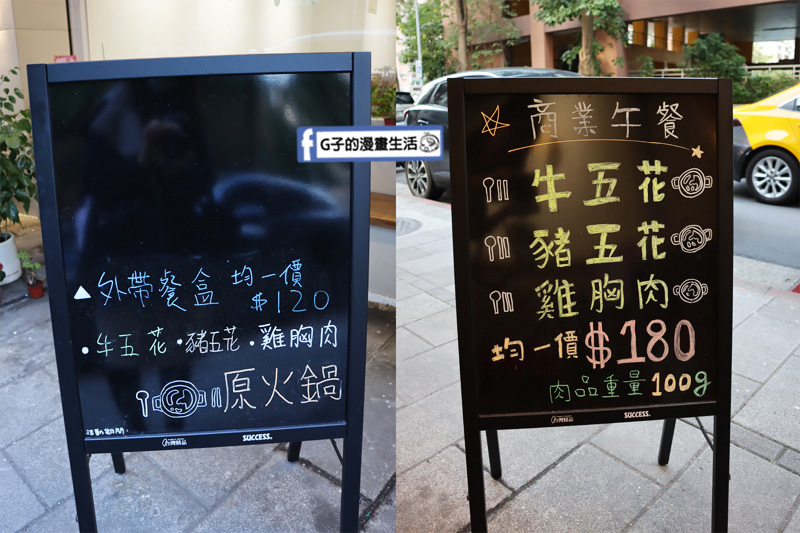 G子的漫畫生活
外帶餐盒 均一價
$120
•牛五花 •豬五花 •雞胸肉
原火鍋
SUCCESS.
商業午餐
牛五花
豬五花
雞胸肉
均一價$180
肉品重量100g
SUCCESS.